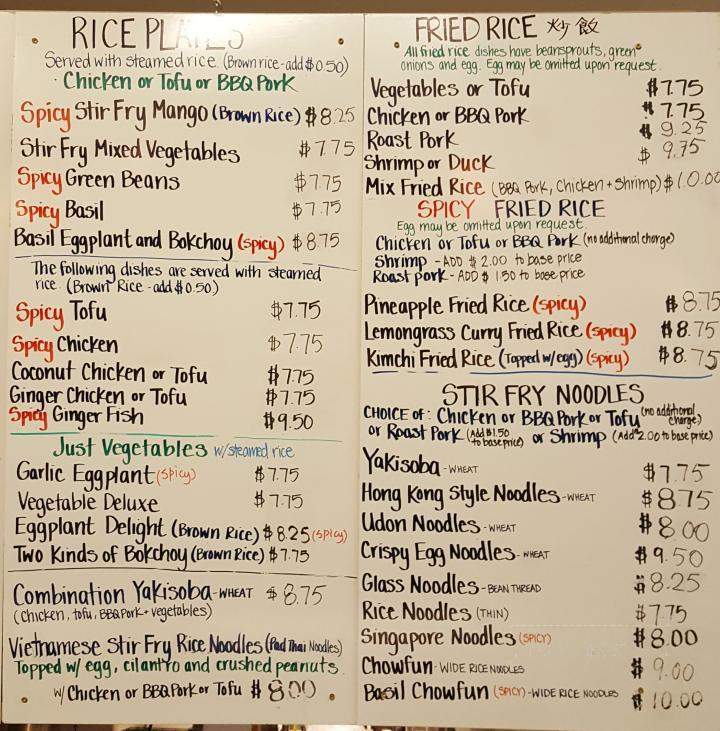 RICE PLATES
Served with steamed rice (Brown rice-add $0.50)
· Chicken or Tofu or BBQ Pork
Spicy Stir Fry Mango (Brown Rice) $8.25
Stir Fry Mixed Vegetables $7.75
Spicy Green Beans $7.75
Spicy Basil $7.75
Basil Eggplant and Bokchoy (spicy) $8.75
The following dishes are served with steamed
rice (Brown Rice -add $0.50)
Spicy Tofu $7.75
Spicy Chicken $7.75
Coconut Chicken or Tofu $7.75
Ginger Chicken or Tofu $7.75
Spicy Ginger Fish $9.50
Just Vegetables w/steamed rice
Garlic Eggplant (spicy) $7.75
Vegetable Deluxe $7.75
Eggplant Delight (Brown Rice) $8.25 (spicy)
Two Kinds of Bokchoy (Brown Rice) $7.75
Combination Yakisoba-WHEAT $8.75
(chicken, tofu, BBQ Pork + vegetables)
Vietnamese Stir Fry Rice Noodles (Pad Thai Noodles)
Topped w/ egg, cilantro and crushed peanuts.
w/ Chicken or BBQ Pork or Tofu $8.00
FRIED RICE 炒飯
All fried rice dishes have beansprouts, green
onions and egg. Egg may be omitted upon request.
Vegetables or Tofu $7.75
Chicken or BBQ Pork $7.75
Roast Pork $9.25
Shrimp or Duck $9.75
Mix Fried Rice (BBQ Pork, Chicken + Shrimp) $10.00
SPICY FRIED RICE
Egg may be omitted upon request
Chicken or Tofu or BBQ Pork (no additional charge)
Shrimp -ADD $2.00 to base price
Roast pork-ADD $1.50 to base price
Pineapple Fried Rice (spicy) $8.75
Lemongrass Curry Fried Rice (spicy) $8.75
Kimchi Fried Rice (Topped w/egg) (spicy) $8.75
STIR FRY NOODLES
CHOICE of: Chicken or BBQ Pork or Tofu (no additional charge)
or Roast Pork (Add $1.50 to base price) or Shrimp (Add $2.00 to base price)
Yakisoba-WHEAT $7.75
Hong Kong Style Noodles-WHEAT $8.75
Udon Noodles-WHEAT $8.00
Crispy Egg Noodles-WHEAT $9.50
Glass Noodles-BEAN THREAD $8.25
Rice Noodles (THIN) $7.75
Singapore Noodles (SPICY) $8.00
Chowfun-WIDE RICE NOODLES $9.00
Basil Chowfun (SPICY)-WIDE RICE NOODLES $10.00